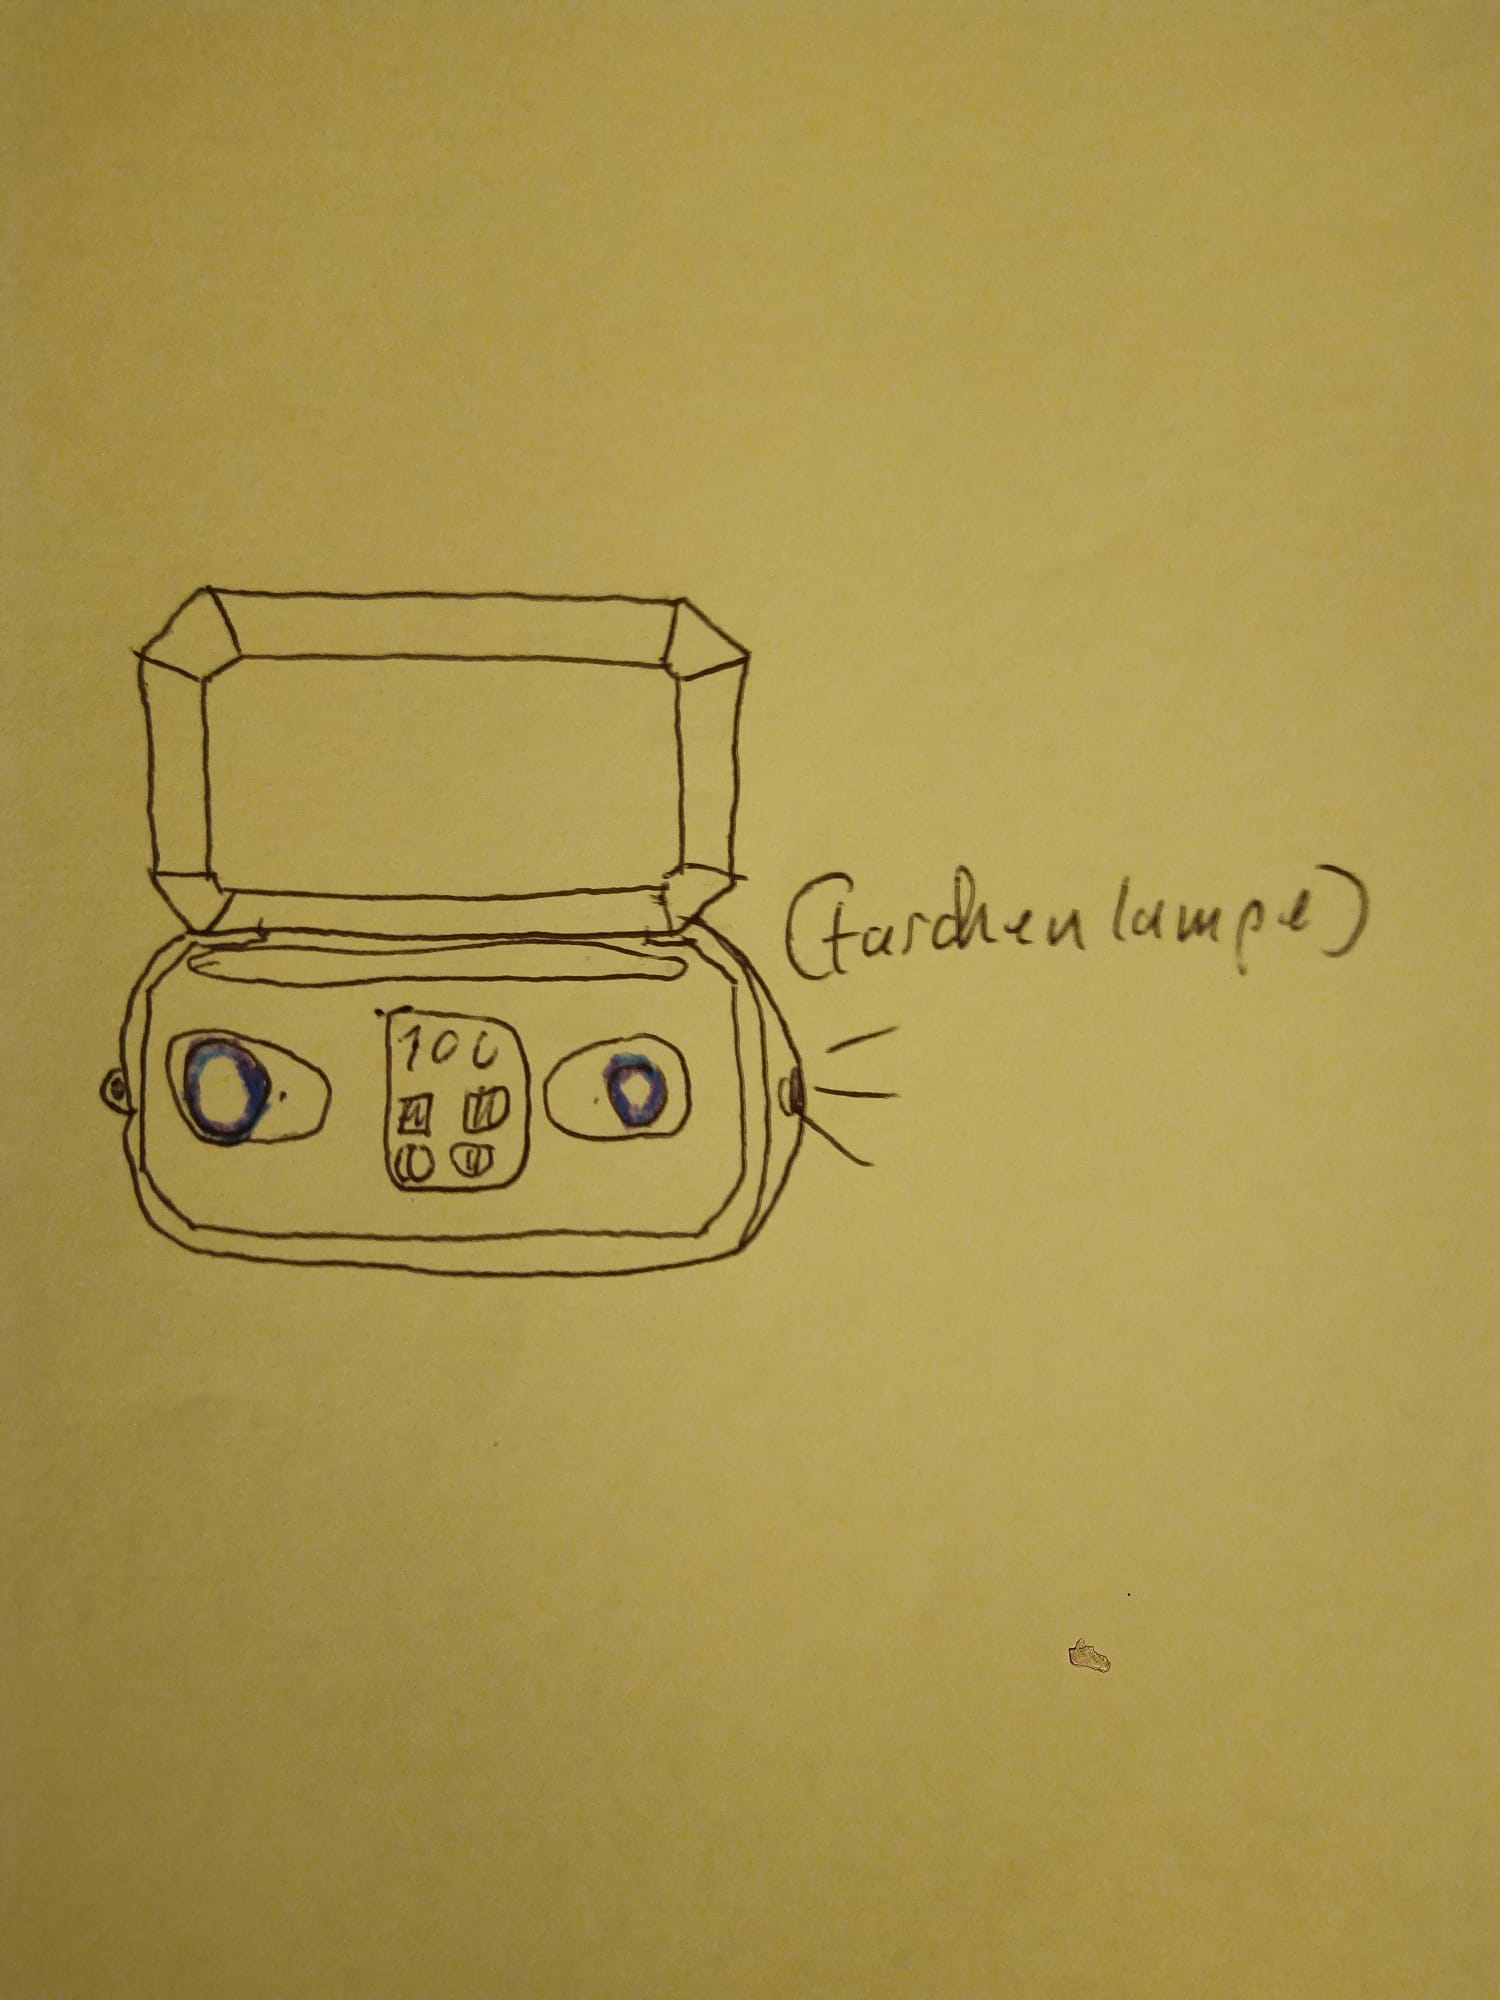 (taschenlampe)
100